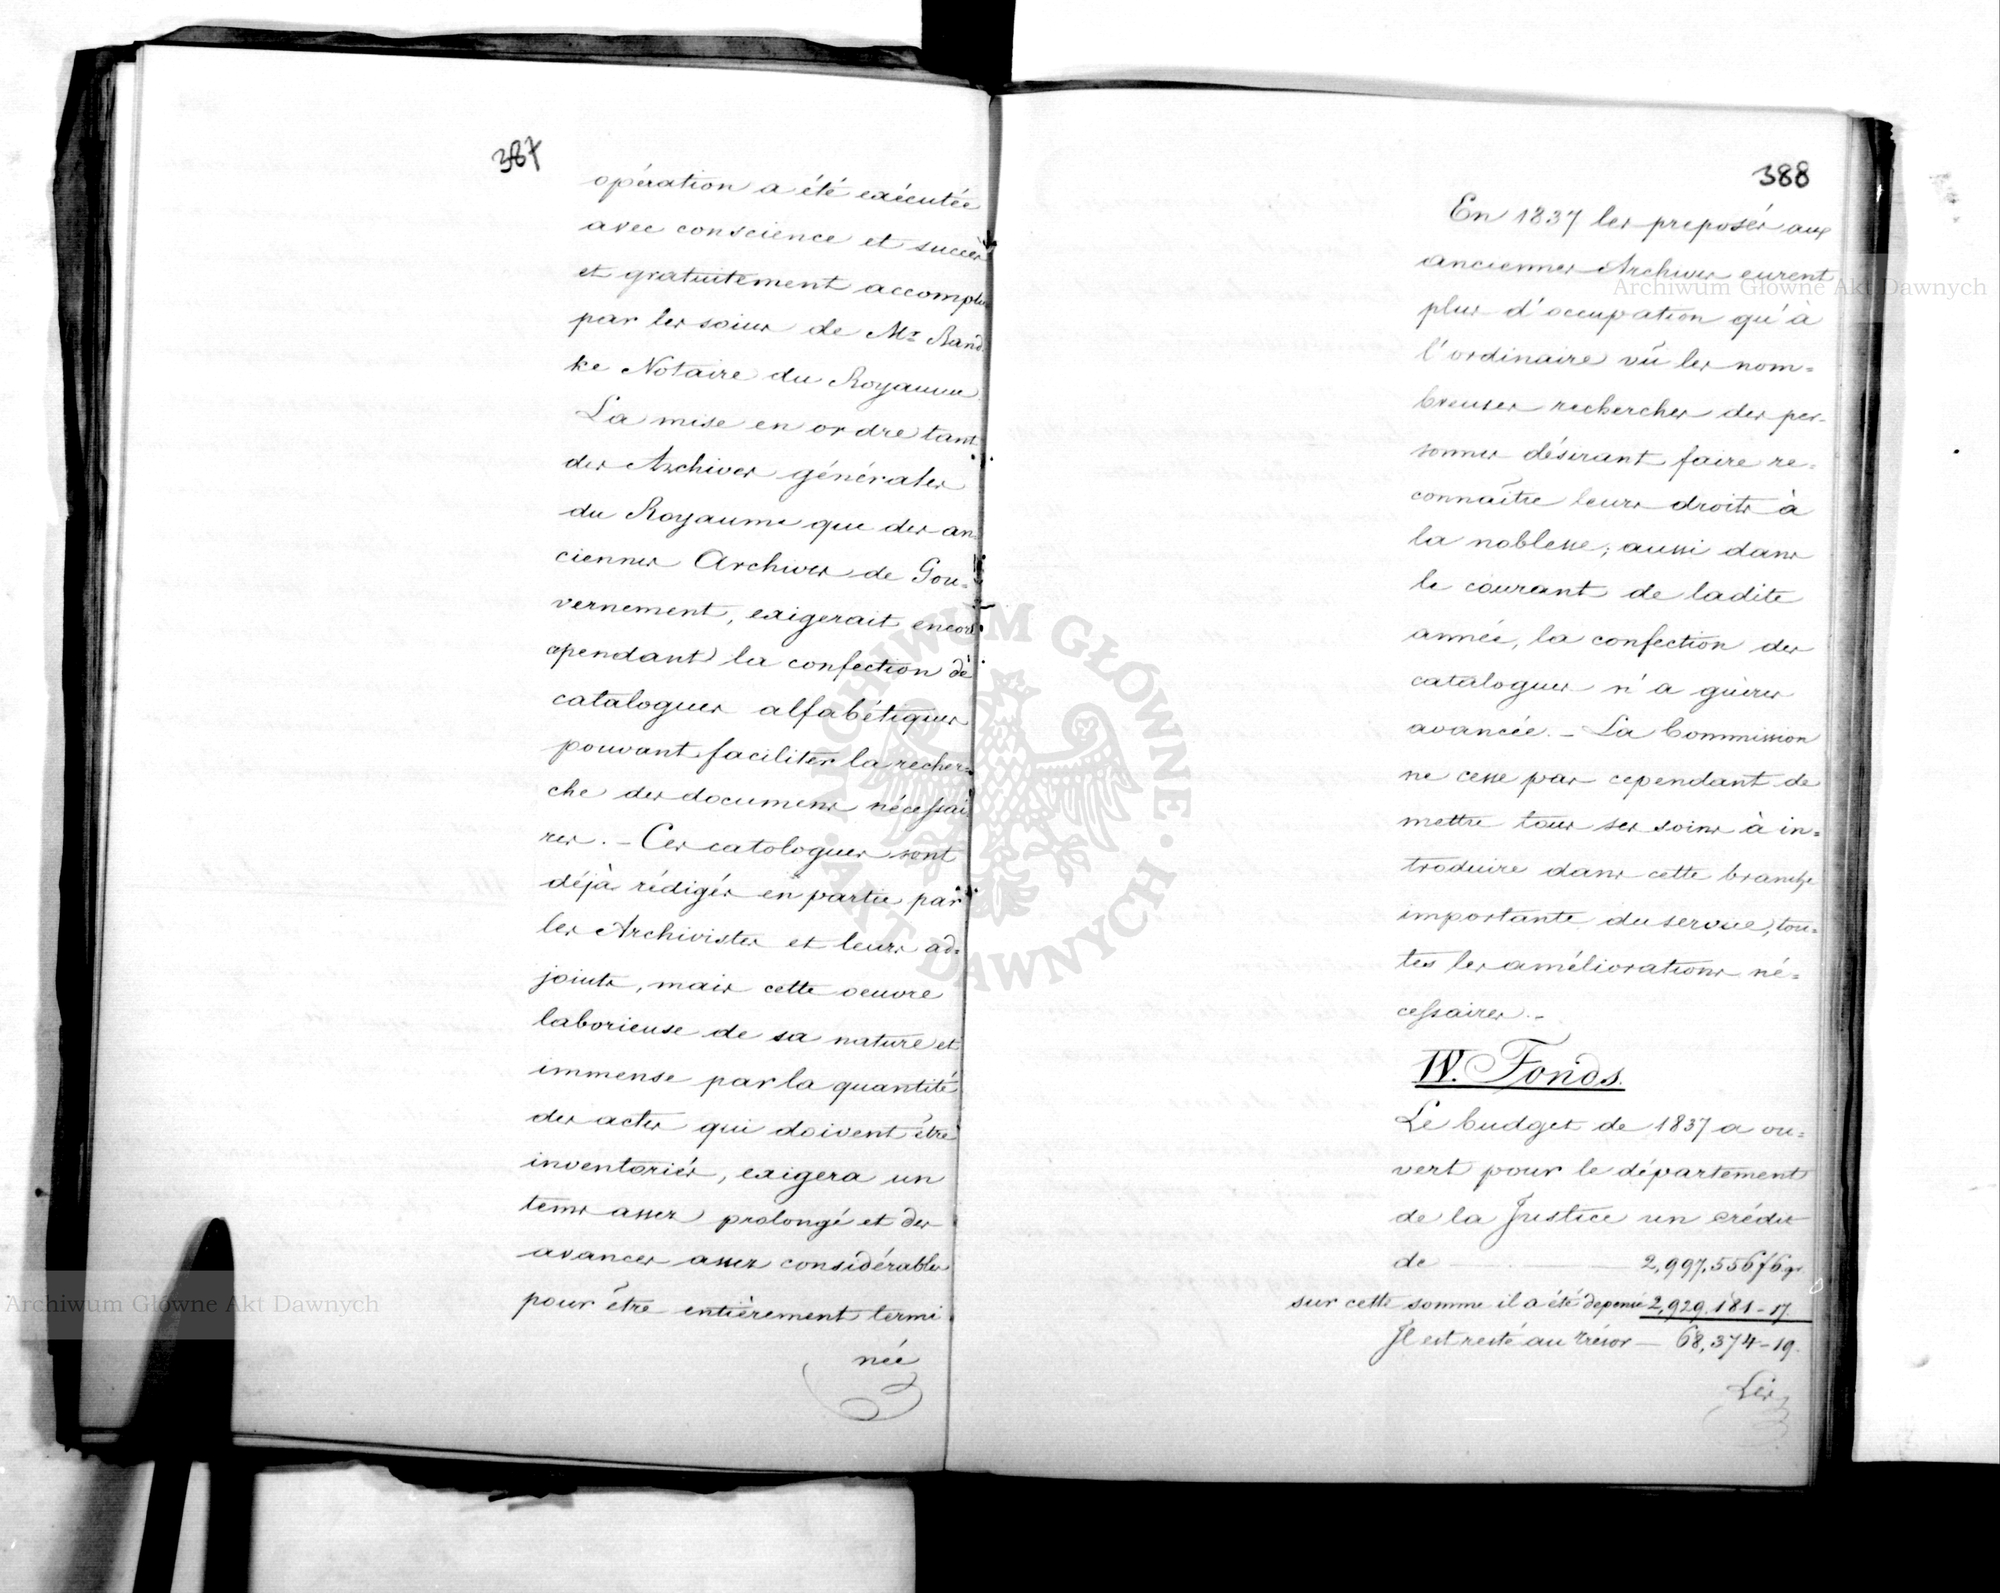 387
opération a été exécutée
avec conscience et succès
et gratuitement accomplie
par les soins de Mr Band
ke Notaire du Royaume
La mise en ordre tant
des Archives générales
du Royaume que des an
ciennes Archives de Gou-
vernement, exigerait encore
cependant la confection de
catalogues alfabétiques
pouvant faciliter la recher-
che des documens nécessai
res. – Ces catologues sont
déjà rédigés en partie par
les Archivistes et leurs ad-
joints, mais cette oeuvre
laborieuse de sa nature et
immense par la quantité
des actes qui doivent être
inventoriés, exigera un
tems assez prolongé et des
avances assez considérables
pour être entièrement termi
née
388
En 1837 les preposés aux
anciennes Archives eurent
plus d'occupation qu'à
l'ordinaire vû les nom-
breuses recherches des per-
sonnes désirant faire re-
connaître leurs droits à
la noblesse; aussi dans
le courant de ladite
année, la confection des
catalogues n'a guères
avancée. – La Commission
ne cesse pas cependant de
mettre tous ses soins à in-
troduire dans cette branche
importante du service, tou-
tes les améliorations né-
cessaires. –
IV. Fonds.
Le budget de 1837 a ou-
vert pour le département
de la Justice un crédit
de 2,997,556 f 6 gr.
sur cette somme il a été depensé 2,929.181 – 17.
Il est resté au trésor – 68,374 – 19.
Les
Archiwum Główne Akt Dawnych
Archiwum Główne Akt Dawnych
ARCHIWUM GŁÓWNE · AKT DAWNYCH ·